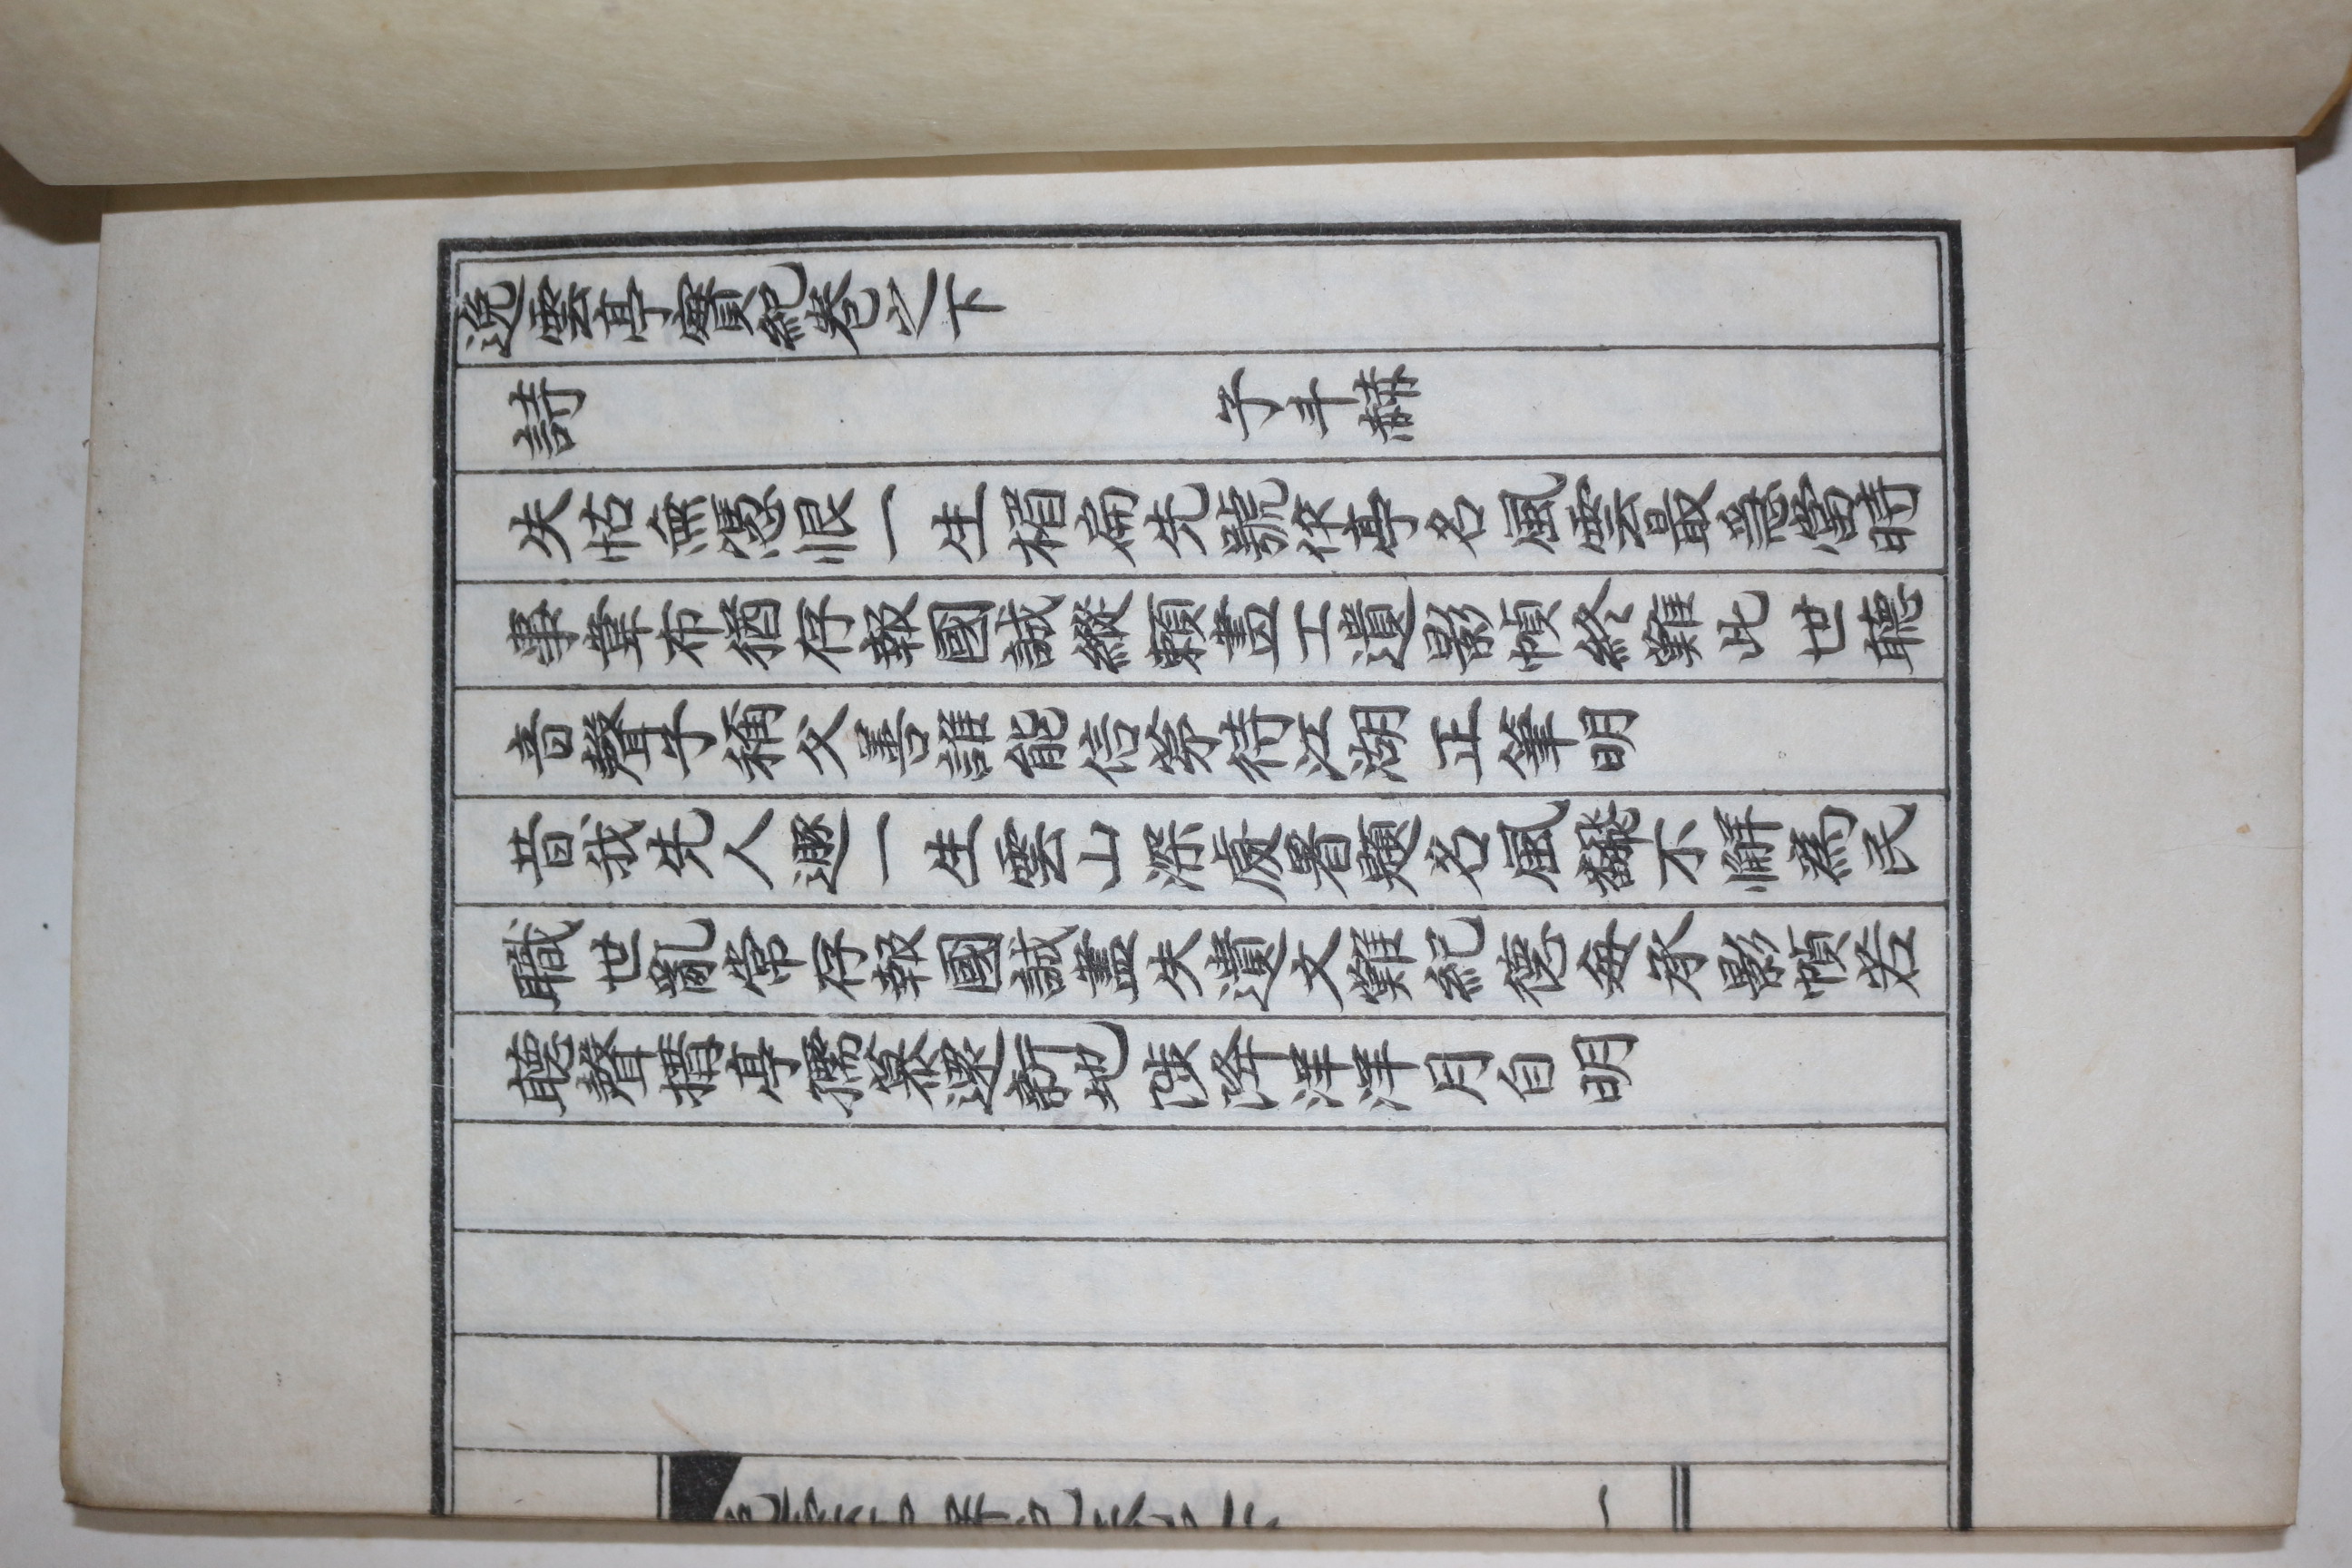 逸雲亭實紀卷之下
詩
子斗赫
失怙無憑恨一生楣扁先號作亭名風雲最急當時
事韋布猶存報國誠縱賴畫工遺影幀終難此世聽
音聲子稱父善誰能信第待江湖正筆明
昔我先人遯一生雲山深處署題名風飜不懈爲民
職世亂常存報國誠盡失遺文難紀德每承影幀若
聽聲搆亭孺慕還新地陟降洋洋月白明
一